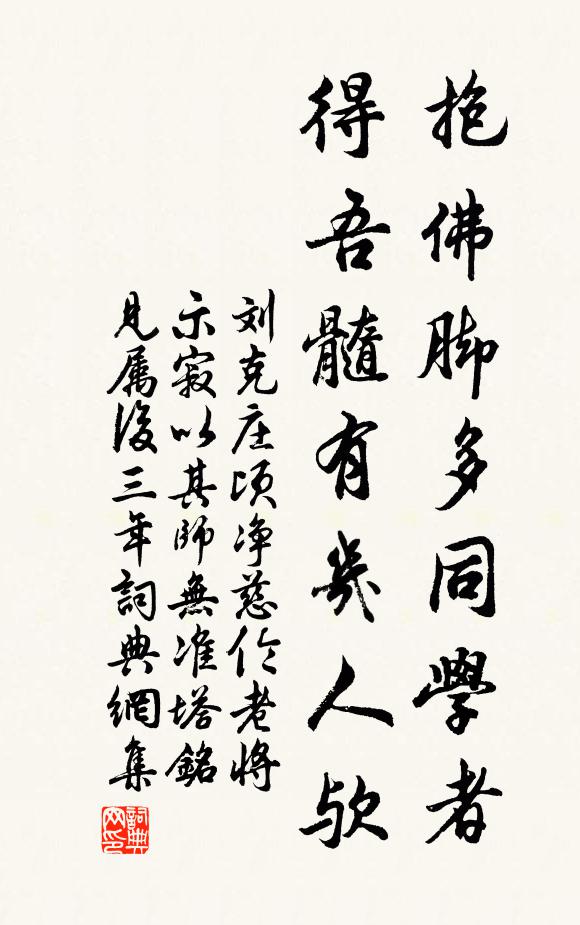 抱佛脚多同學者
得吾髓有幾人欤
刘克庄頃净慈伦老將
示寂以其師無准塔銘
見属後三年詞典網集
詞典网印